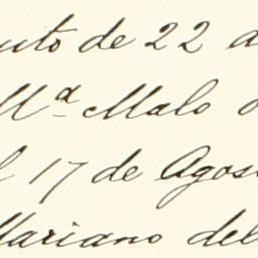 uto de 22 a
Mª Malo d
l 17 de Agos
Mariano del